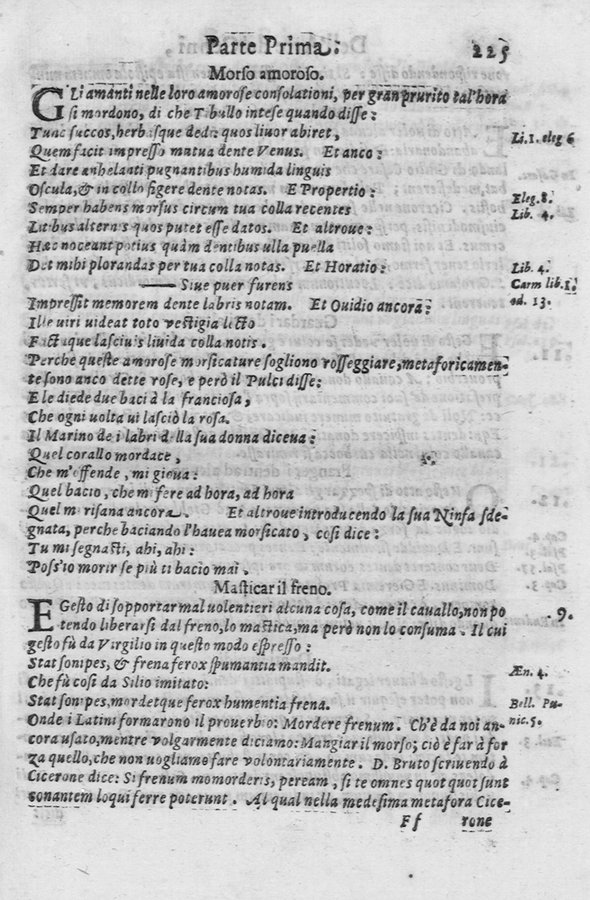 Parte Prima. 225
Morso amoroso.
GLi amanti nelle loro amorose consolationi, per gran prurito tal'hora
si mordono, di che Tibullo intese quando disse:
Tunc succos, herbasque dedi quos liuor abiret, Li. 1. eleg 6
Quem facit impresso mutua dente Venus. Et anco:
Et dare anhelanti pugnantibus humida linguis
Oscula, & in collo figere dente notas. E Propertio: Eleg. 8.
Semper habens morsus circum tua colla recentes Lib. 4.
Litibus alternis quos putet esse datos. Et altroue:
Hæc noceant potius quàm dentibus ulla puella
Det mihi plorandas per tua colla notas. Et Horatio: Lib. 4.
—— Siue puer furens Carm lib. 1.
Impressit memorem dente labris notam. Et Ouidio ancora: od. 13.
Ille uiri uideat toto vestigia lecto
Factaque lasciuis liuida colla notis.
Perche queste amorose morsicature sogliono rosseggiare, metaforicamen-
te sono anco dette rose, e però il Pulci disse:
E le diede due baci à la franciosa,
Che ogni uolta ui lasciò la rosa.
Il Marino de i labri della sua donna diceua:
Quel corallo mordace,
Che m'offende, mi gioua:
Quel bacio, che mi fere ad hora, ad hora
Quel mi risana ancora. Et altroue introducendo la sua Ninfa sde-
gnata, perche baciando l'hauea morsicato, così dice:
Tu mi segnasti, ahi, ahi:
Poss'io morir se più ti bacio mai.
Masticar il freno.
E Gesto di sopportar mal uolentieri alcuna cosa, come il cauallo, non po 9.
tendo liberarsi dal freno, lo mastica, ma però non lo consuma. Il cui
gesto fù da Virgilio in questo modo espresso:
Stat sonipes, & frena ferox spumantia mandit. Æn. 4.
Che fù così da Silio imitato:
Stat sonipes, mordetque ferox humentia frena. Bell. Pu-
Onde i Latini formarono il prouerbio: Mordere frenum. Ch'è da noi an- nic. 5.
cora usato, mentre volgarmente diciamo: Mangiar il morso; ciò è far à for
za quello, che non uogliamo fare volontariamente. D. Bruto scriuendo à
Cicerone dice: Si frenum momorderis, peream, si te omnes quot quot sunt
conantem loqui ferre poterunt. Al qual nella medesima metafora Cice-
Ff rone